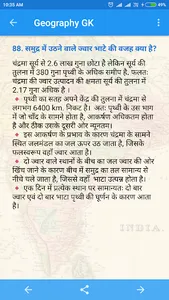 10:55 AM
Geography GK
88. समुद्र में उठने वाले ज्वार भाटे की वजह क्या है?
चंद्रमा सूर्य से 2.6 लाख गुना छोटा है लेकिन सूर्य की
तुलना में 380 गुना पृथ्वी के अधिक समीप है. फलतः
चंद्रमा की ज्वार उत्पादन की क्षमता सूर्य की तुलना में
2.17 गुना अधिक है।
पृथ्वी का सतह अपने केंद्र की तुलना में चंद्रमा से
लगभग 6400 कि.मी. निकट है। अतः पृथ्वी के उस भाग
में जो चाँद के सामने होता है, आकर्षण अधिकतम होता
है और ठीक उसके दूसरी ओर न्यूनतम।
इस आकर्षण के प्रभाव के कारण चंद्रमा के सामने
स्थित जलमंडल का जल ऊपर उठ जाता है, जिसके
फलस्वरूप वहाँ ज्वार आता है।
दो ज्वार वाले स्थानों के बीच का जल ज्वार की ओर
खिंच जाने के कारण बीच में समुद्र का तल सामान्य से
नीचे चले जाता है, जिससे वहाँ भाटा उत्पन्न होता है।
एक दिन में प्रत्येक स्थान पर सामान्यतः दो बार
ज्वार एवं दो बार भाटा पृथ्वी की घूर्णन के कारण आता
है।
INDIA